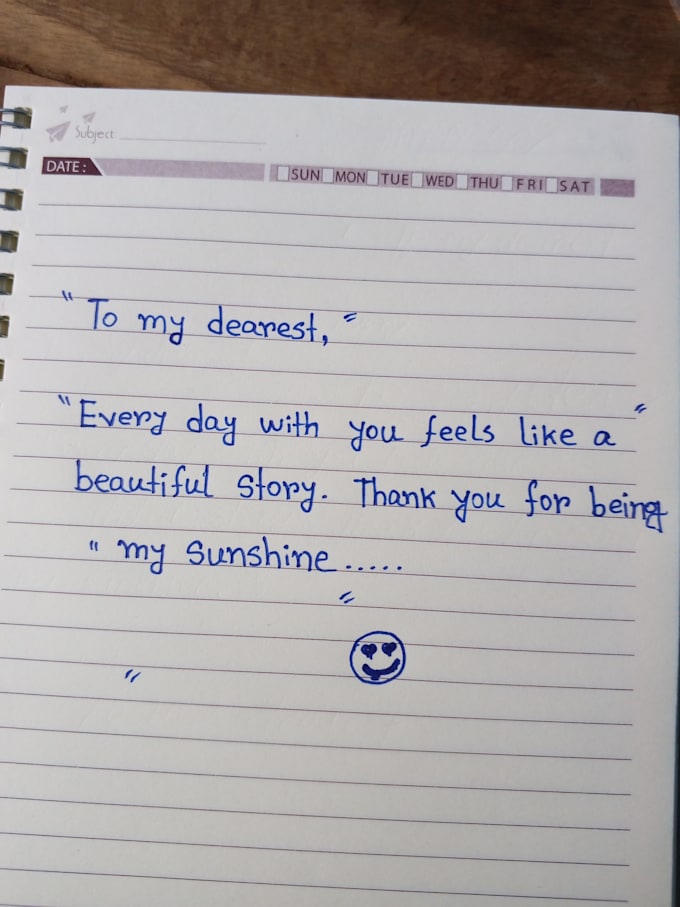 Subject:
DATE: SUN MON TUE WED THU FRI SAT
"To my dearest,"
"Every day with you feels like a"
beautiful story. Thank you for being
"my sunshine.....
"
"